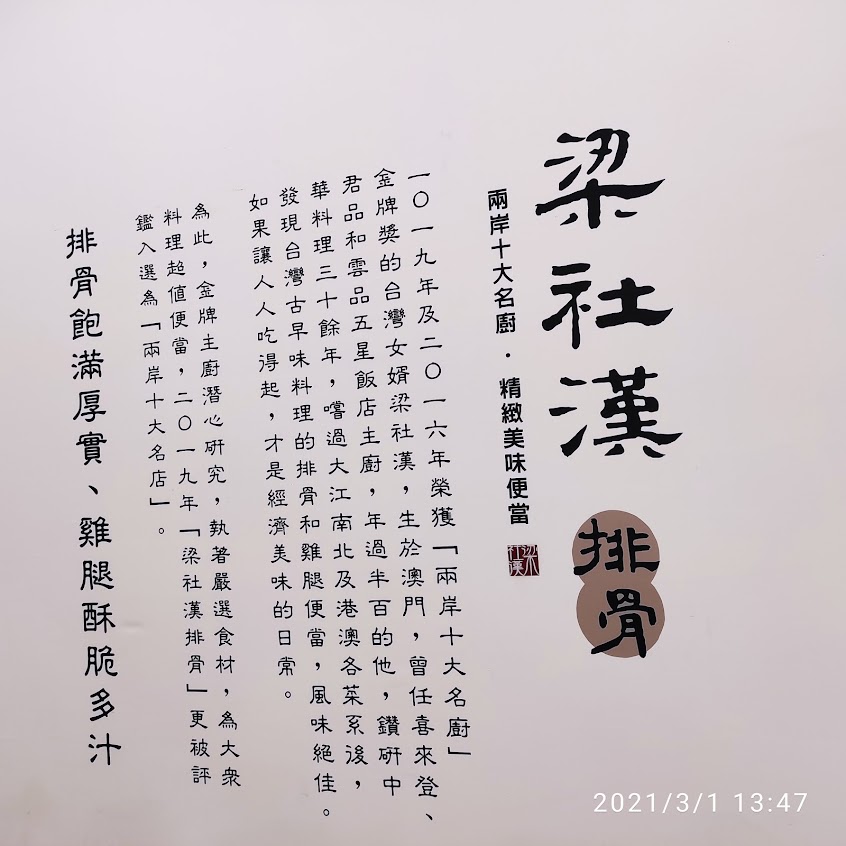 梁社漢
排骨
兩岸十大名廚．精緻美味便當
梁社漢
一〇一九年及二〇一六年榮獲「兩岸十大名廚」
金牌獎的台灣女婿梁社漢，生於澳門，曾任喜來登、
君品和雲品五星飯店主廚，年過半百的他，鑽研中
華料理三十餘年，嚐過大江南北及港澳各菜系後，
發現台灣古早味料理的排骨和雞腿便當，風味絕佳。
如果讓人人吃得起，才是經濟美味的日常。
為此，金牌主廚潛心研究，執著嚴選食材，為大眾
料理超值便當，二〇一九年「梁社漢排骨」更被評
鑑入選為「兩岸十大名店」。
排骨飽滿厚實、雞腿酥脆多汁
2021/3/1 13:47